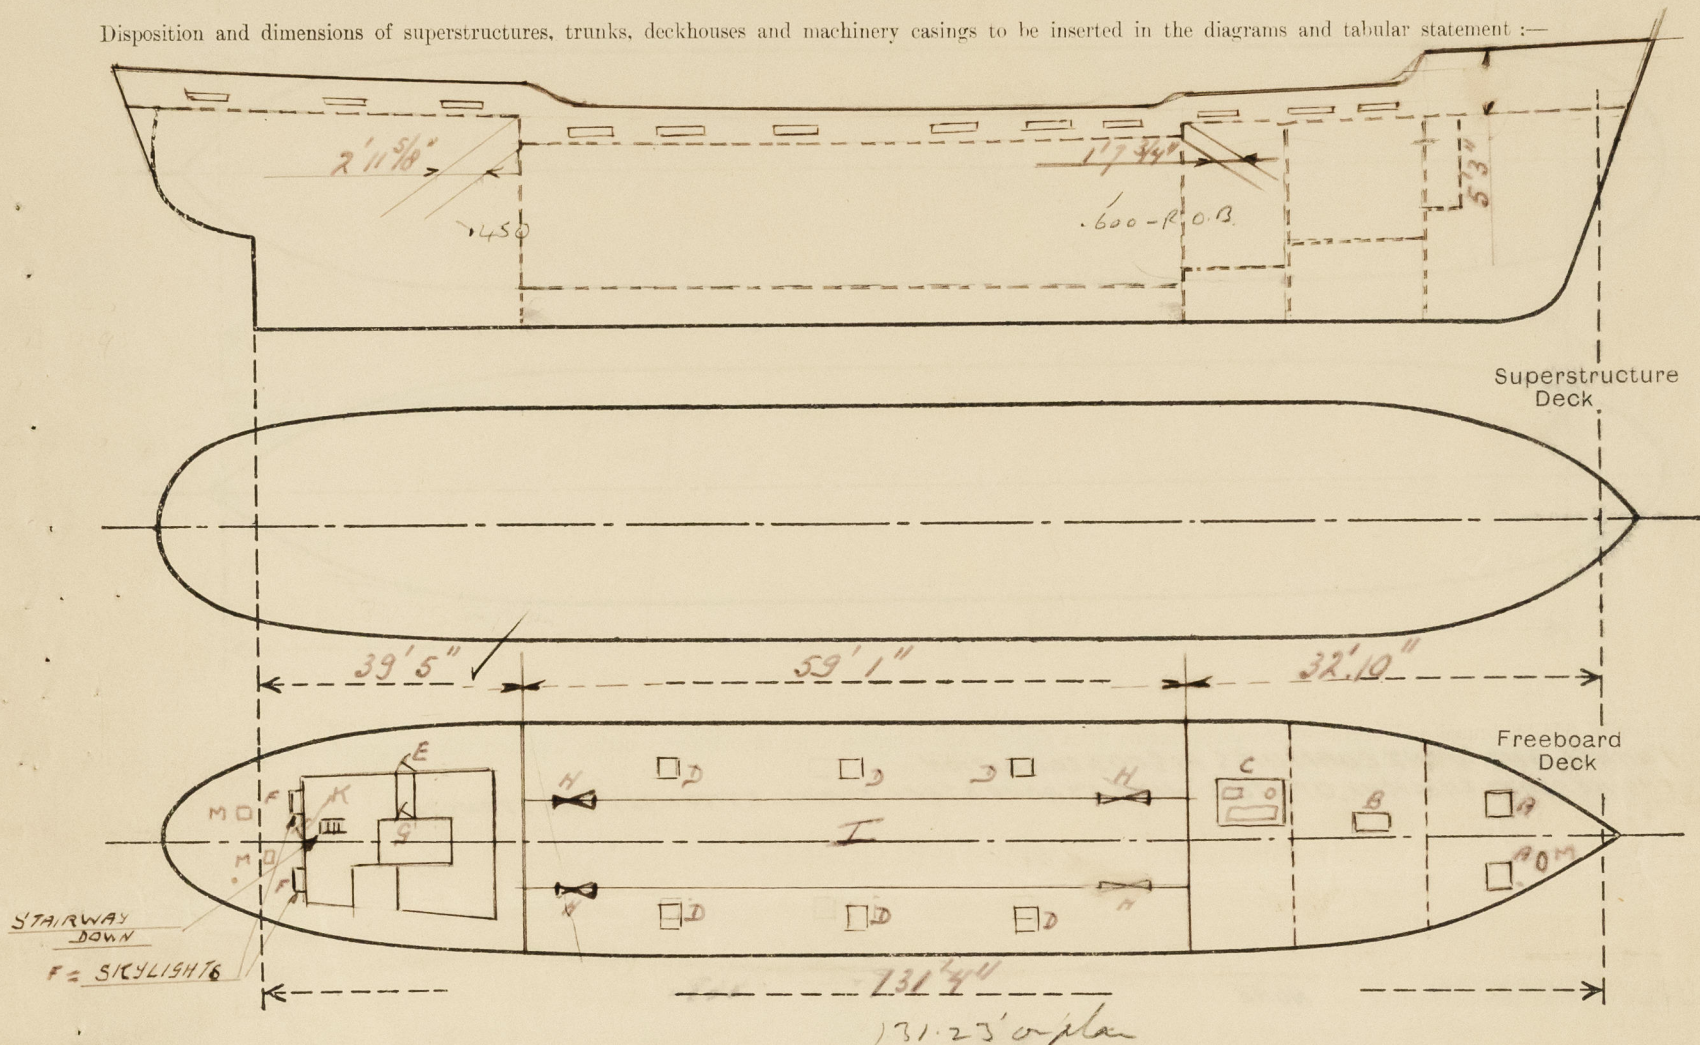 Disposition and dimensions of superstructures, trunks, deckhouses and machinery casings to be inserted in the diagrams and tabular statement :—
2' 11 5/8"
1' 7 3/4"
5' 3"
.450
.600 - R.O.B.
Superstructure
Deck.
39' 5"
59' 1"
32'.10"
Freeboard
Deck
E
D
D
D
C
H
H
F
K
M
B
A
G
I
M
A
M
F
H
H
D
D
D
STAIRWAY
DOWN
F = SKYLIGHTS
131' 4"
131.23' on plan